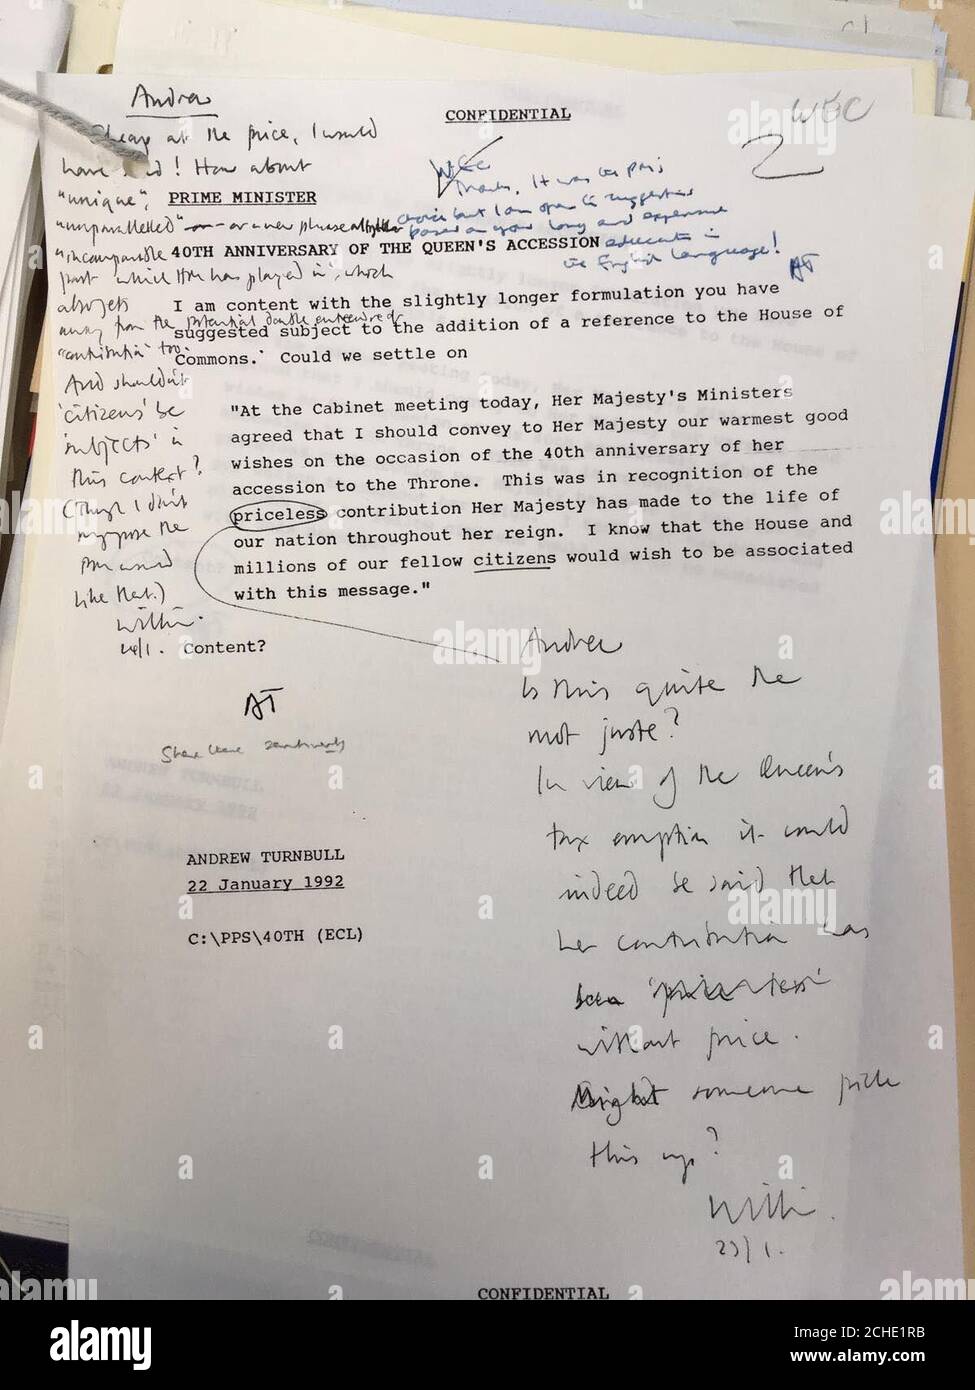 Andrew
Cheap at the price, I would
have said! How about
"unique",
"unparalleled" - or a new phrase altogether
"incomparable
part which HM has played in", which
also gets
away from the potential double entendre of
'contribution' too.
And shouldn't
'citizens' be
'subjects' in
this context?
(Though I don't
suppose the
PM would
like that.)
William.
24/1.
CONFIDENTIAL
WEC
2
WEC
Thanks. It was the PM's
choice but I am open to suggestions
based on your long and expensive
education in
the English language!
AT
PRIME MINISTER
40TH ANNIVERSARY OF THE QUEEN'S ACCESSION
I am content with the slightly longer formulation you have
suggested subject to the addition of a reference to the House of
Commons. Could we settle on
"At the Cabinet meeting today, Her Majesty's Ministers
agreed that I should convey to Her Majesty our warmest good
wishes on the occasion of the 40th anniversary of her
accession to the Throne. This was in recognition of the
priceless contribution Her Majesty has made to the life of
our nation throughout her reign. I know that the House and
millions of our fellow citizens would wish to be associated
with this message."
Content?
AT
Share these sentiments
ANDREW TURNBULL
22 January 1992
C:\PPS\40TH (ECL)
Andrew
Is this quite the
mot juste?
In view of the Queen's
tax emption it could
indeed be said that
her contribution has
been 'priceless'
without price.
Might someone pick
this up?
William.
23/1.
CONFIDENTIAL
alamy
Image ID: 2CHE1RB
www.alamy.com